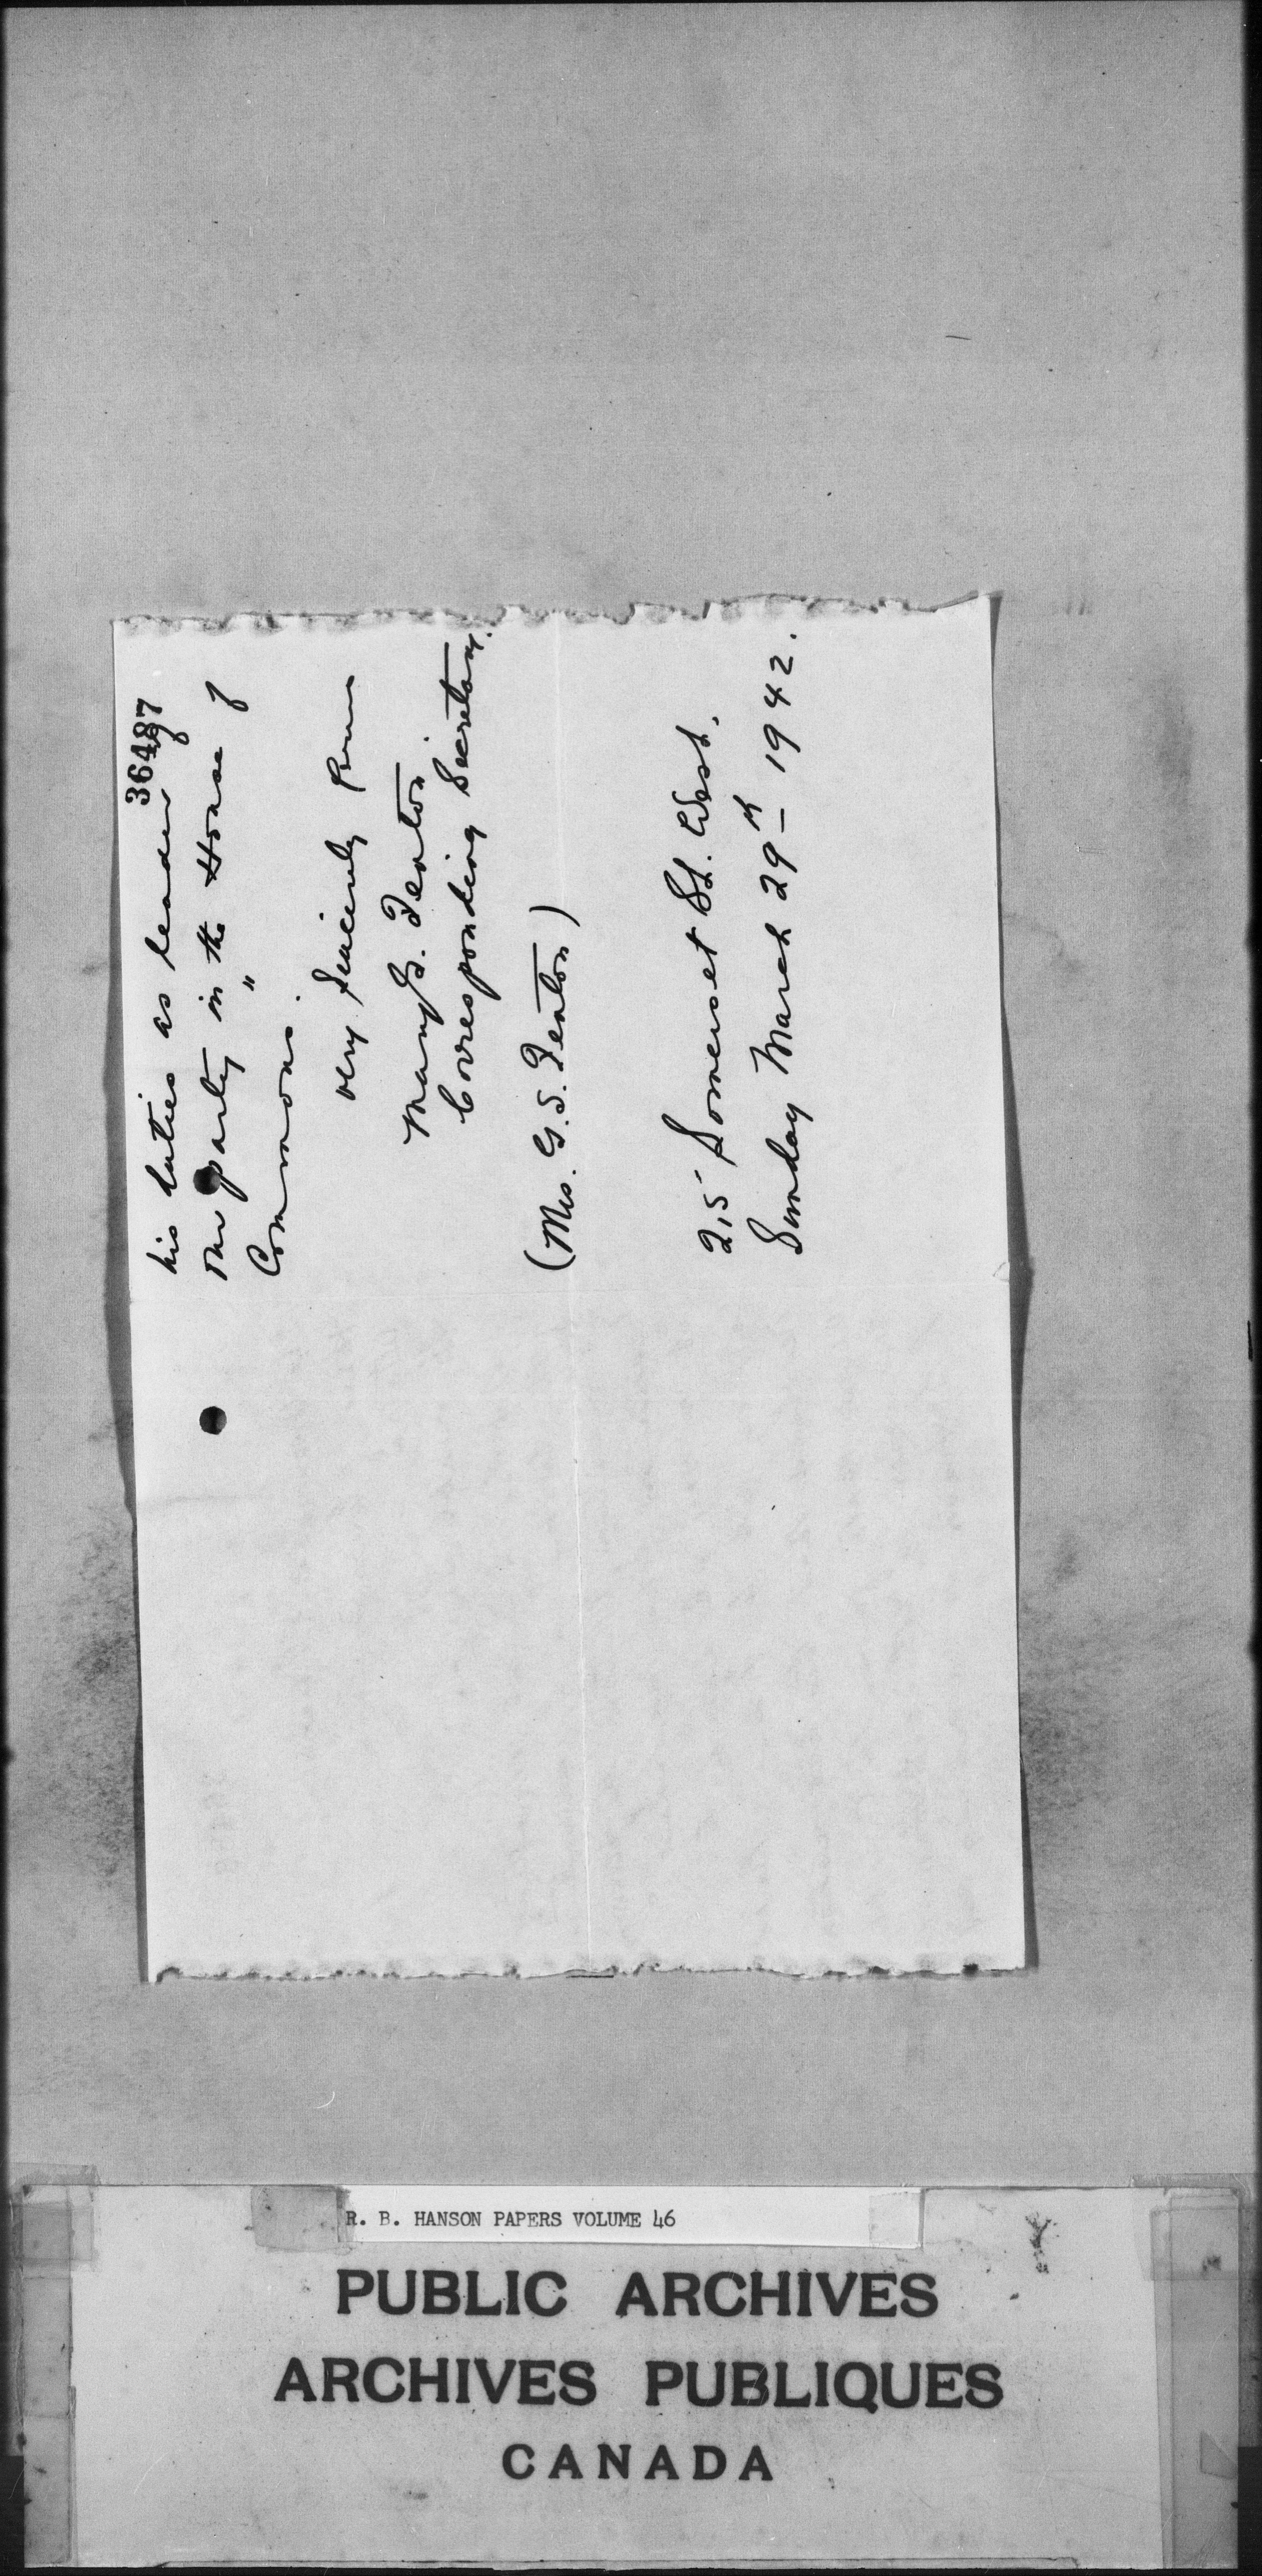 36487
his duties as leader of
our party in the House of
"
Commons.
very sincerely yours
Mary G. Fenton
Corresponding Secretary.
(Mrs. G. S. Fenton)
215 Somerset St. West.
Sunday March 29th 1942.
R. B. HANSON PAPERS VOLUME 46
PUBLIC ARCHIVES
ARCHIVES PUBLIQUES
CANADA